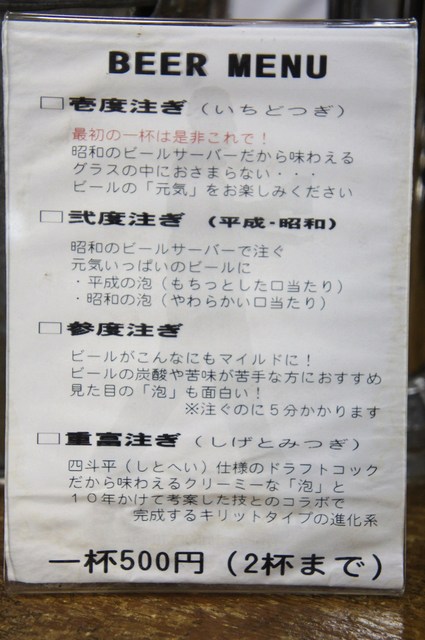 BEER MENU
□壱度注ぎ（いちどつぎ）
最初の一杯は是非これで！
昭和のビールサーバーだから味わえる
グラスの中におさまらない・・・
ビールの「元気」をお楽しみください
□弐度注ぎ （平成-昭和）
昭和のビールサーバーで注ぐ
元気いっぱいのビールに
・平成の泡（もちっとした口当たり）
・昭和の泡（やわらかい口当たり）
□参度注ぎ
ビールがこんなにもマイルドに！
ビールの炭酸や苦味が苦手な方におすすめ
見た目の「泡」も面白い！
※注ぐのに５分かかります
□重富注ぎ（しげとみつぎ）
四斗平（しとへい）仕様のドラフトコック
だから味わえるクリーミーな「泡」と
１０年かけて考案した技とのコラボで
完成するキリットタイプの進化系
一杯500円（2杯まで）